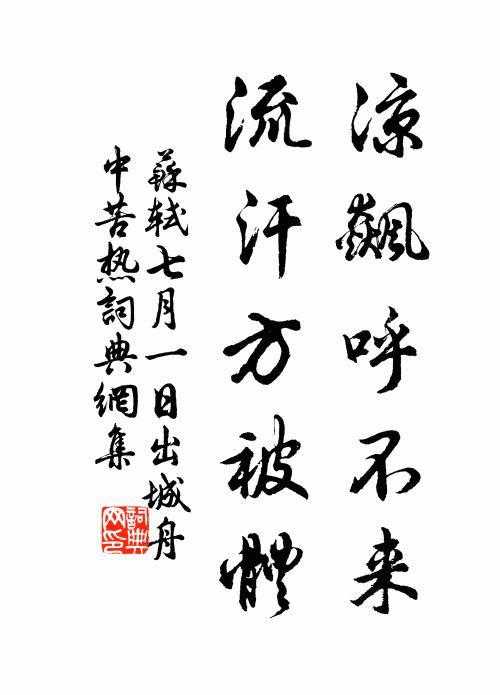 凉飙呼不来
流汗方被體
蘇軾七月一日出城舟
中苦热詞典網集
詞典
网印